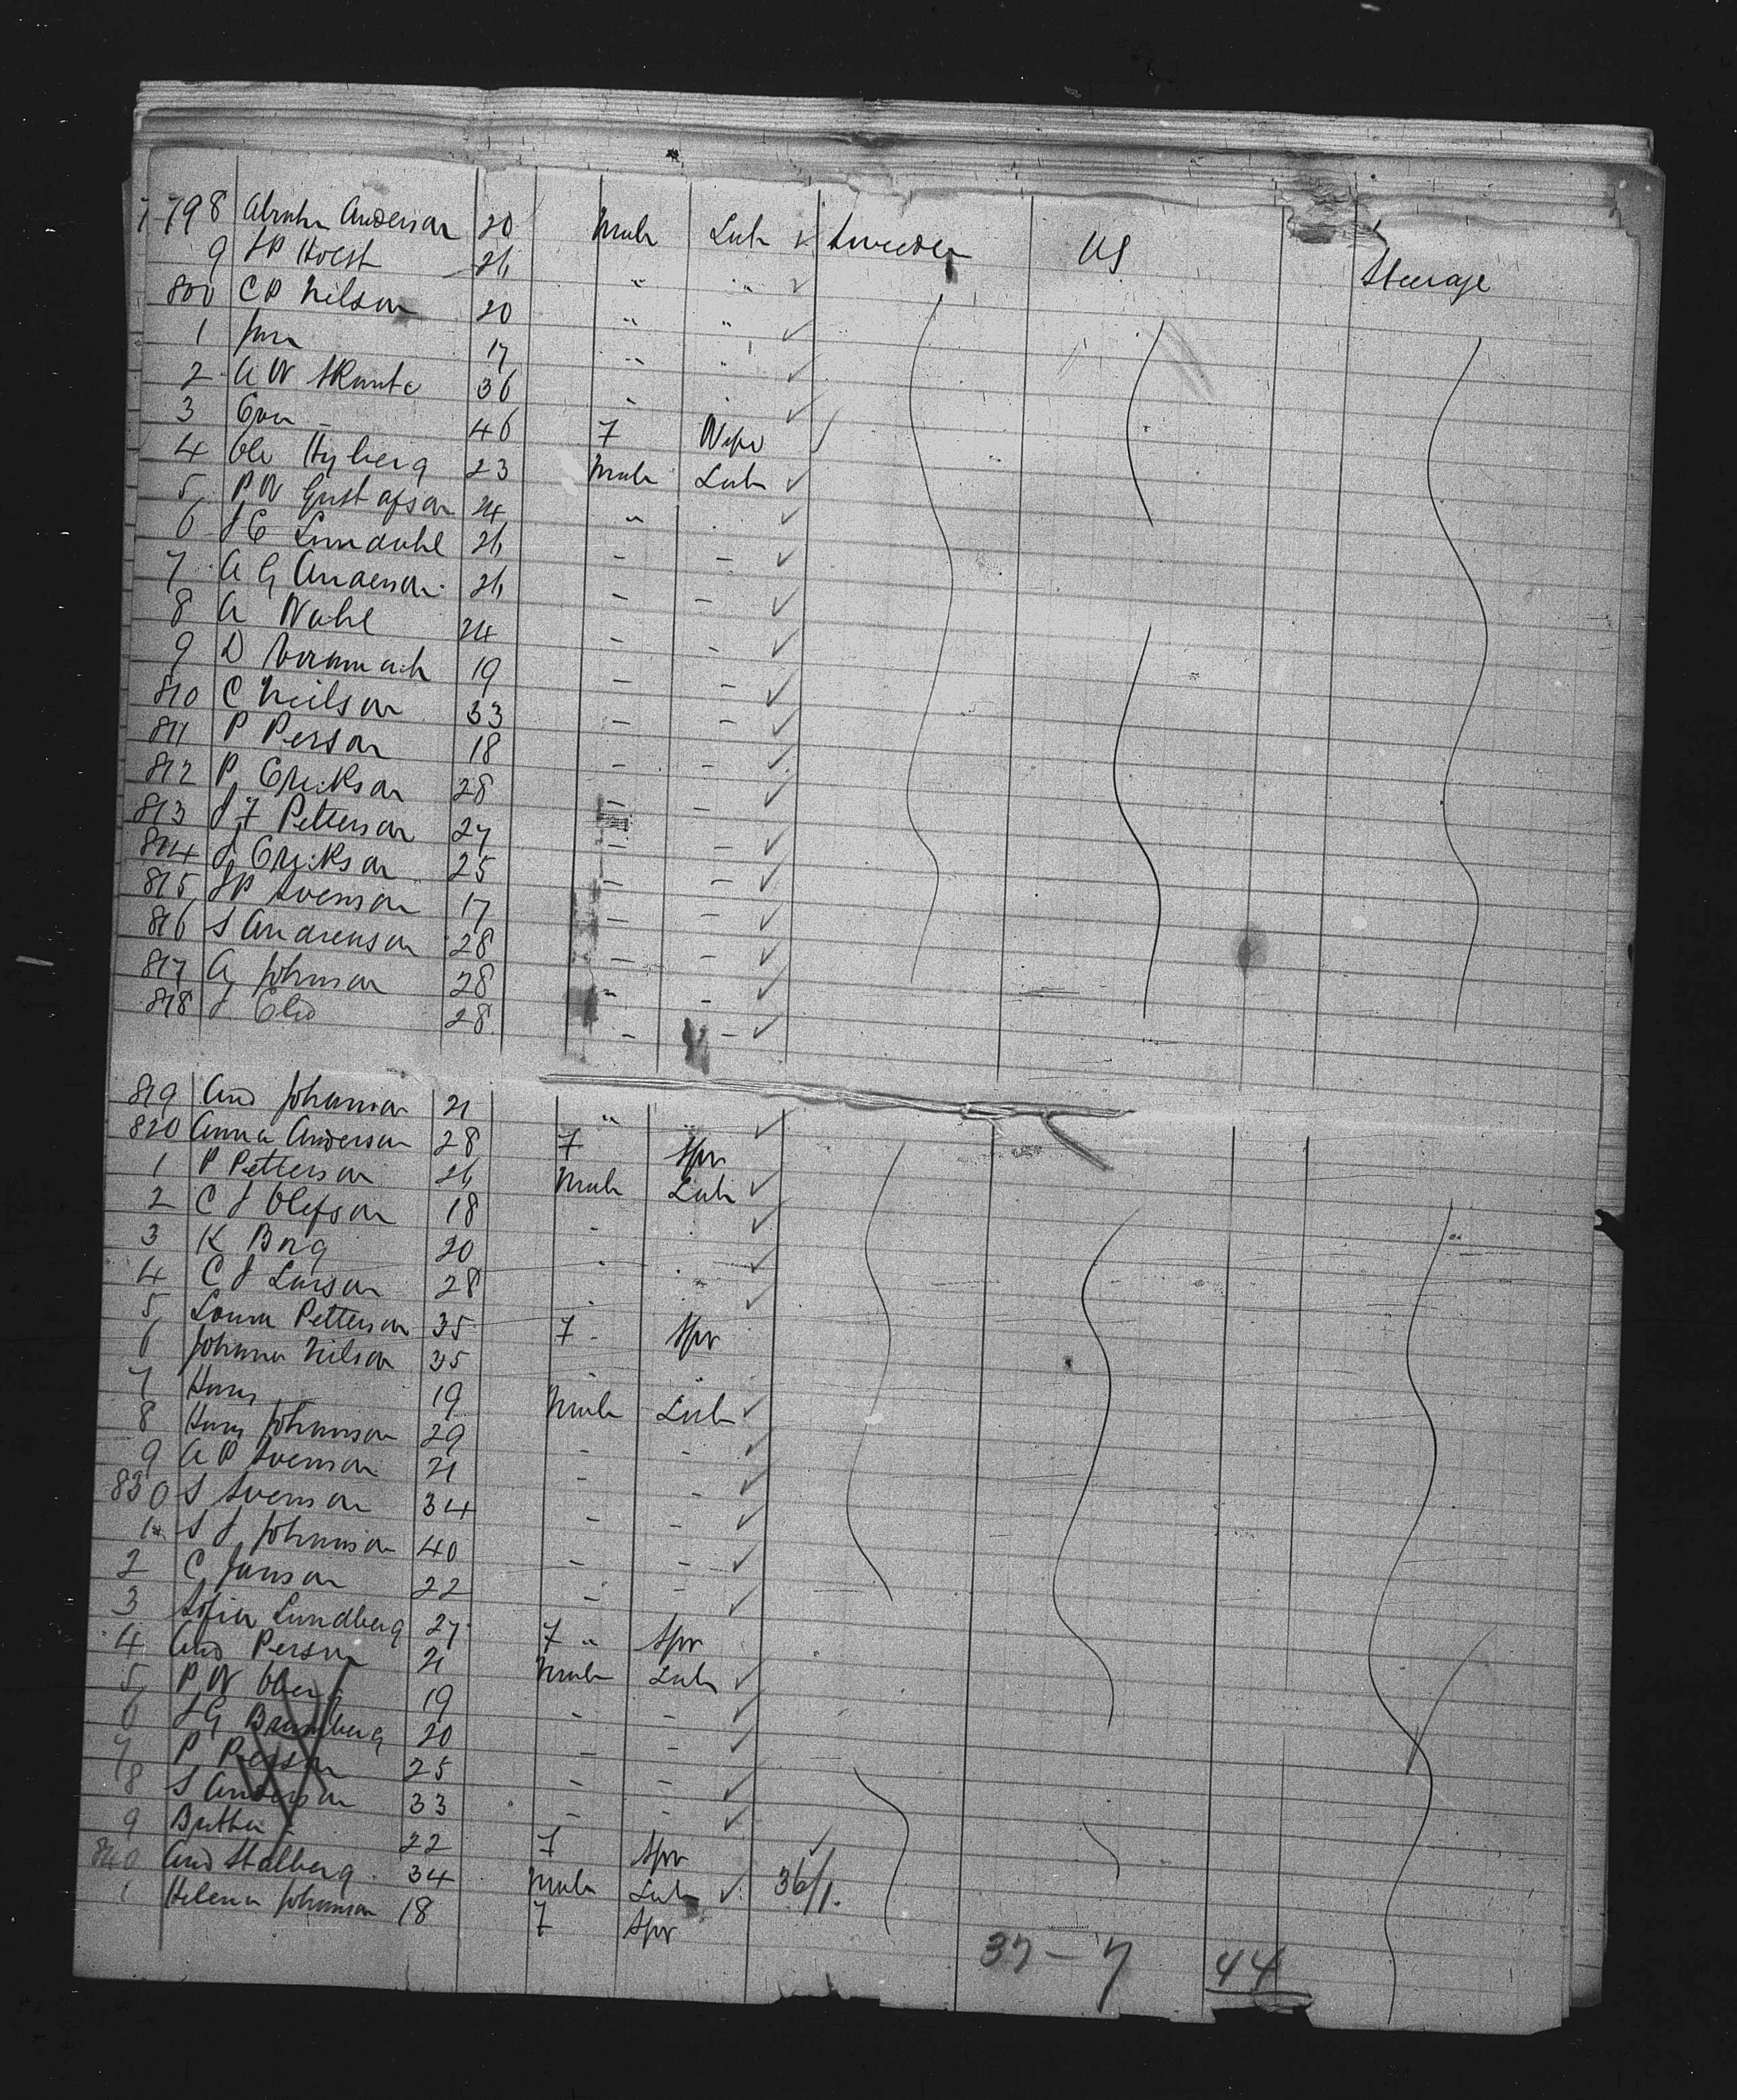 798 Abrahm Anderson 20 Male Lab ✓ Sweden US Steerage
9 J P Holst 26 " " ✓
800 C P Nilson 20 " " ✓
1 Jura 17 " " ✓
2 A W 36 " ✓
3 Eva - 46 F Wife
4 Ole Hyberg 23 Male Lab ✓
5 P W Gustafson 24 " ✓
6 J E Lundahl 26 - - ✓
7 A G Anderson 26 - - ✓
8 A Wahl 24 - - ✓
9 D 19 - - ✓
810 C Neilson 33 - - ✓
811 P Person 18 - - ✓
812 P Erickson 28 - - ✓
813 J F Petterson 27 - - ✓
814 J Erickson 25 - - ✓
815 J P Svenson 17 - - ✓
816 S Andrenson 28 - - ✓
817 A Johnson 28 " - ✓
818 J 28 - - ✓
819 And Johanson 21 " " ✓
820 Anna Anderson 28 F Spr
1 P Petterson 26 Male Lab ✓
2 C J Olefson 18 - ✓
3 K Borg 20 ✓
4 C J Larson 28 ✓
5 Louisa Petterson 35 F - Spr
6 Johanna Nilson 35 - -
7 Hans 19 Male Lab ✓
8 Hans Johanson 29 - - ✓
9 A P Svenson 21 - - ✓
830 S Svenson 34 - - ✓
1 S J Johanson 40 - - ✓
2 C Janson 22 - - ✓
3 Sofia Lundberg 27 F " Spr
4 And Person 21 Male Lab ✓
5 P W Oberg 19 - - ✓
6 J G Bromberg 20 - - ✓
7 P Person 25 - - ✓
8 S Anderson 33 - - ✓
9 Botha - 22 F Spr
840 And Stalberg 34 Male Lab ✓ 36/1.
1 Helena Johanson 18 F Spr
37 - 7 44